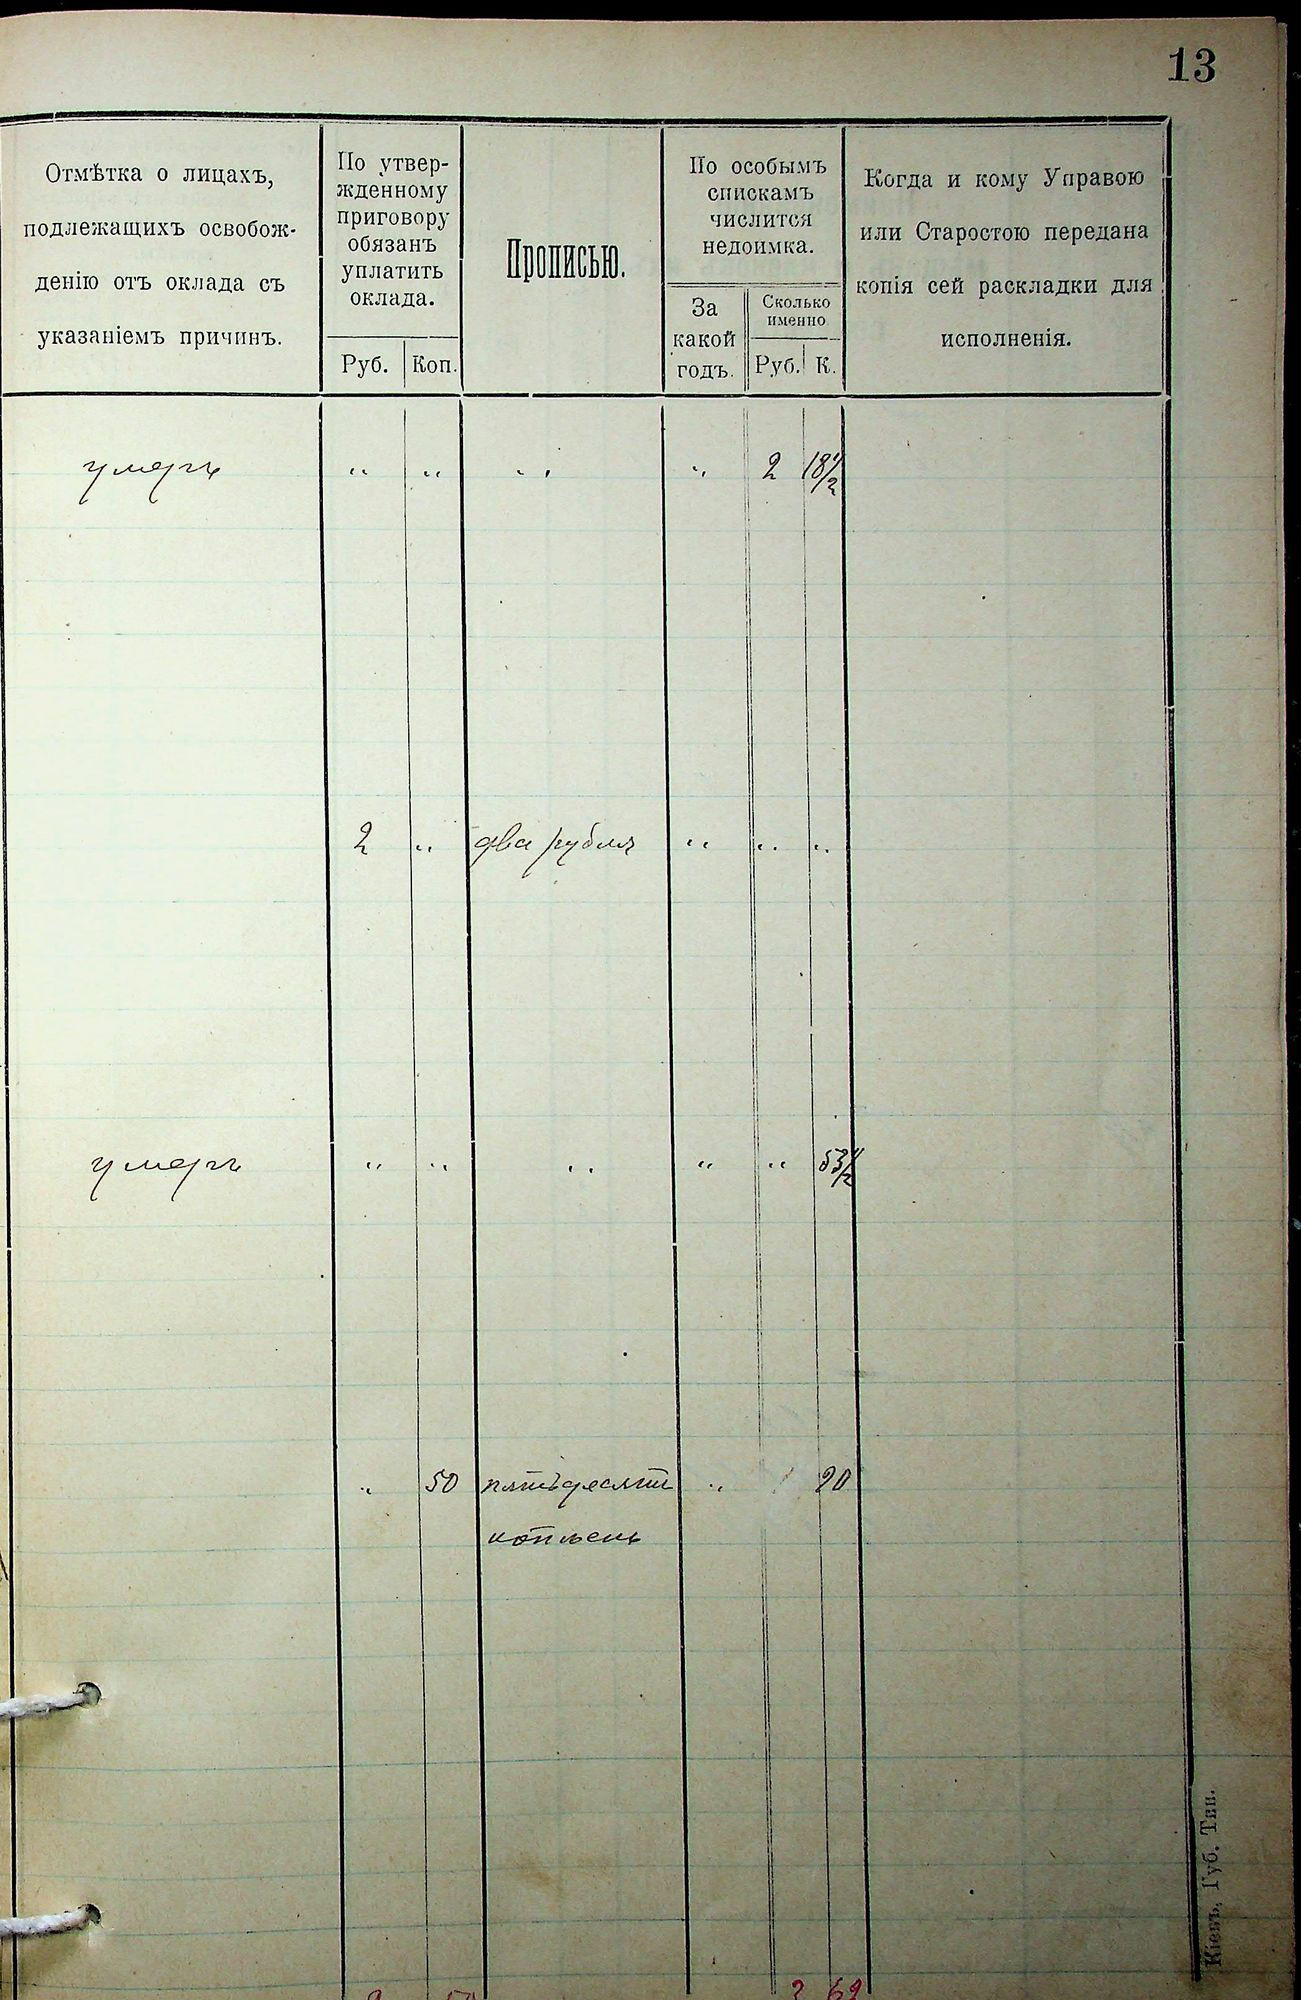 13
Отмѣтка о лицахъ,
подлежащихъ освобож-
денію отъ оклада съ
указаніемъ причинъ.
По утвер-
жденному
приговору
обязанъ
уплатить
оклада.
Руб.
Коп.
Прописью.
По особымъ
спискамъ
числится
недоимка.
За
какой
годъ.
Сколько
именно
Руб.
К.
Когда и кому Управою
или Старостою передана
копія сей раскладки для
исполненія.
умеръ " " " " 2 18 1/2
2 " два рубля " " "
умеръ " " " " " 53 1/2
" 50 пятьдесятъ " 20
копѣекъ
2 50 2 62
Кіевъ, Губ. Тип.